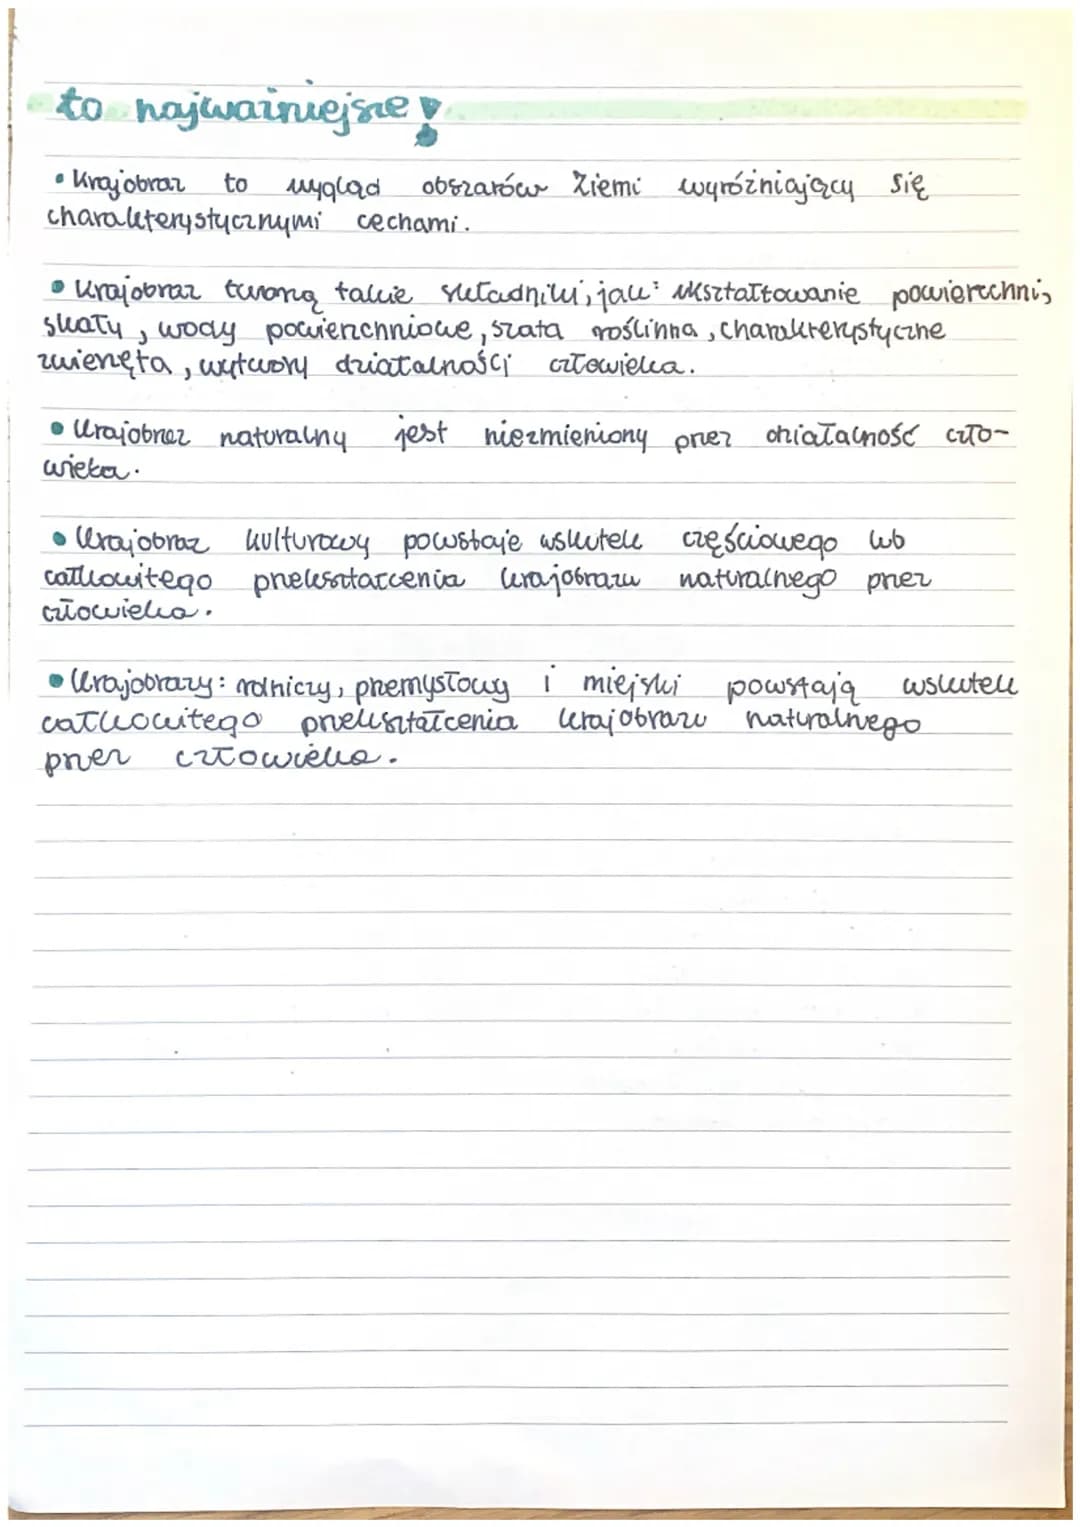 to najważniejsze!
• Krajobraz to wygląd obszarów Ziemi wyróżniający się
charakterystycznymi cechami.
• Krajobraz tworzą takie składniki, jak: ukształtowanie powierzchni,
skały, wody powierzchniowe, szata roślinna, charakterystyczne
zwierzęta, wytwory działalności człowieka.
• Krajobraz naturalny jest niezmieniony przez działalność czło-
wieka.
• Krajobraz kulturowy powstaje wskutek częściowego lub
całkowitego przekształcenia krajobrazu naturalnego przez
człowieka.
• Krajobrazy: rolniczy, przemysłowy i miejski powstają wskutek
całkowitego przekształcenia krajobrazu naturalnego
przez człowieka.